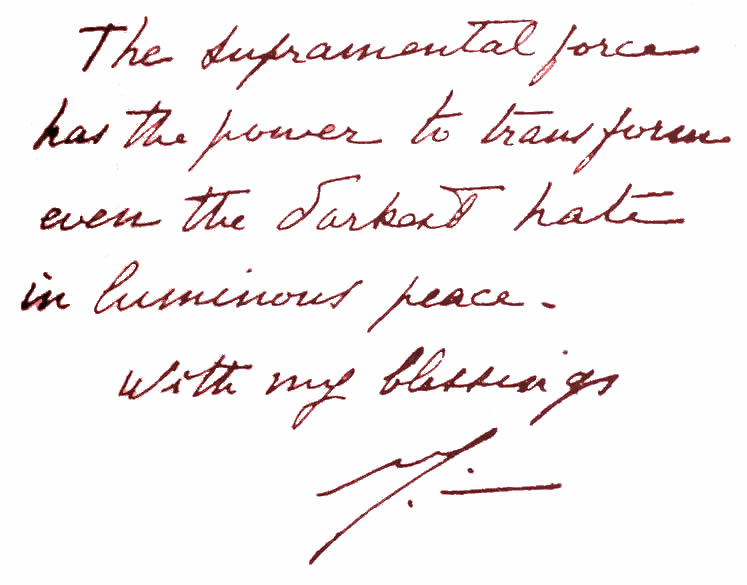 The supramental force
has the power to transform
even the darkest hate
in luminous peace.
With my blessings